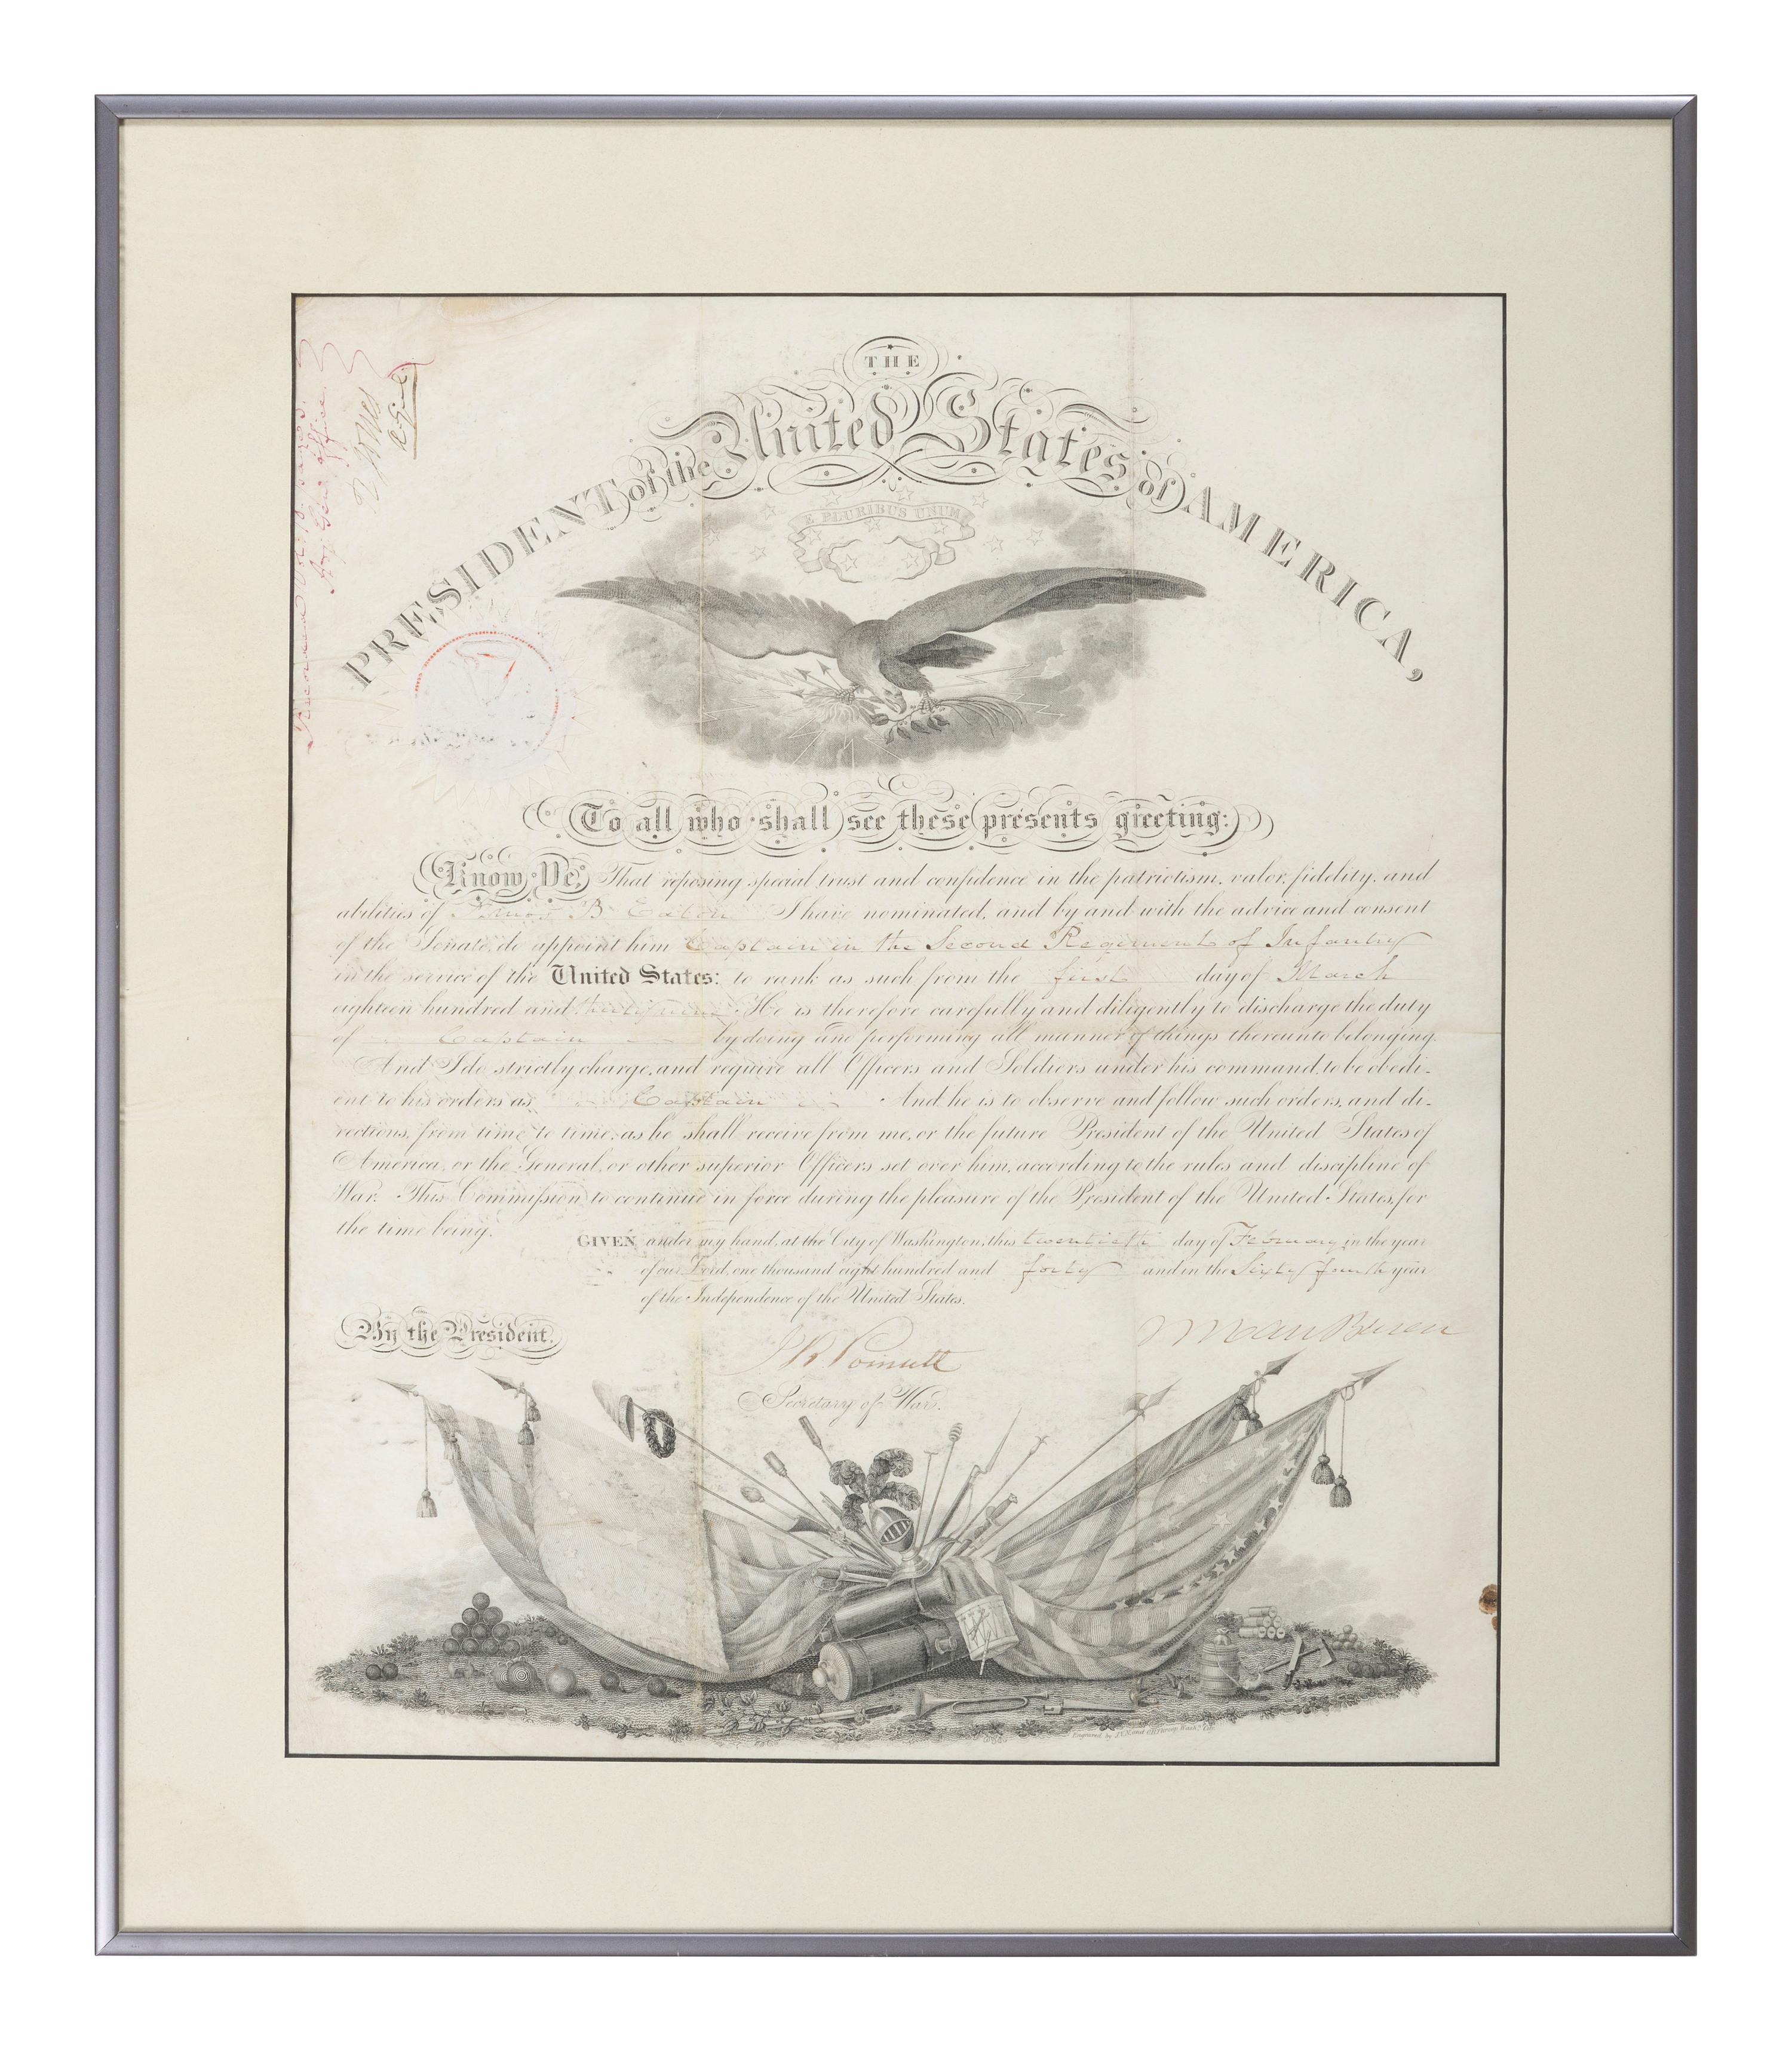 THE
PRESIDENT of the United States of AMERICA,
E PLURIBUS UNUM
To all who shall see these presents greeting:
Know Ye, That reposing special trust and confidence in the patriotism, valor, fidelity, and
abilities of Amos B Eaton I have nominated, and by and with the advice and consent
of the Senate, do appoint him Captain in the Second Regiment of Infantry
in the service of the United States: to rank as such from the first day of March
eighteen hundred and He is therefore carefully and diligently to discharge the duty
of Captain by doing and performing all manner of things thereunto belonging.
And I do strictly charge, and require all Officers and Soldiers under his command, to be obedi-
ent to his orders as Captain And he is to observe and follow such orders, and di-
rections, from time to time, as he shall receive from me, or the future President of the United States of
America, or the General, or other superior Officers set over him, according to the rules and discipline of
War. This Commission to continue in force during the pleasure of the President of the United States, for
the time being.
GIVEN under my hand, at the City of Washington, this twentieth day of February in the year
of our Lord, one thousand eight hundred and forty and in the Sixty fourth year
of the Independence of the United States.
By the President,
M Van Buren
J R Poinsett
Secretary of War.